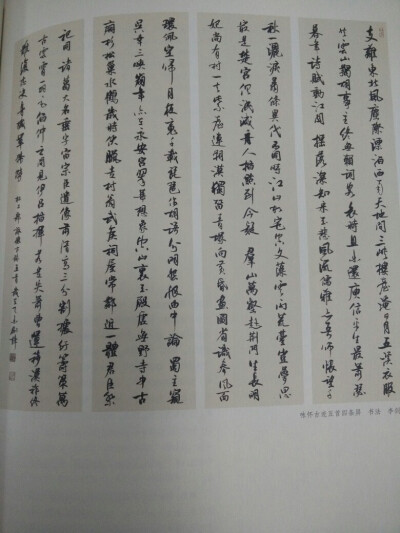 支離東北風塵際漂泊西南天地間三峽樓臺淹日月五溪衣服
共雲山羯胡事主終無賴詞客哀時且未還庾信平生最蕭瑟
暮年詩賦動江關 搖落深知宋玉悲風流儒雅亦吾師悵望千
秋一灑淚蕭條異代不同時江山故宅空文藻雲雨荒臺豈夢思
最是楚宮俱泯滅舟人指點到今疑 群山萬壑赴荊門生長明
妃尚有村一去紫臺連朔漠獨留青塚向黃昏畫圖省識春風面
環珮空歸月夜魂千載琵琶作胡語分明怨恨曲中論 蜀主窺
吳幸三峽崩年亦在永安宮翠華想像空山裏玉殿虛無野寺中古
廟杉松巢水鶴歲時伏臘走村翁武侯祠屋常鄰近一體君臣祭
祀同 諸葛大名垂宇宙宗臣遺像肅清高三分割據紆籌策萬
古雲霄一羽毛伯仲之間見伊呂指揮若定失蕭曹運移漢祚終
難復志決身殲軍務勞 杜工部詠懷古跡五首
咏怀古迹五首四条屏 书法 李